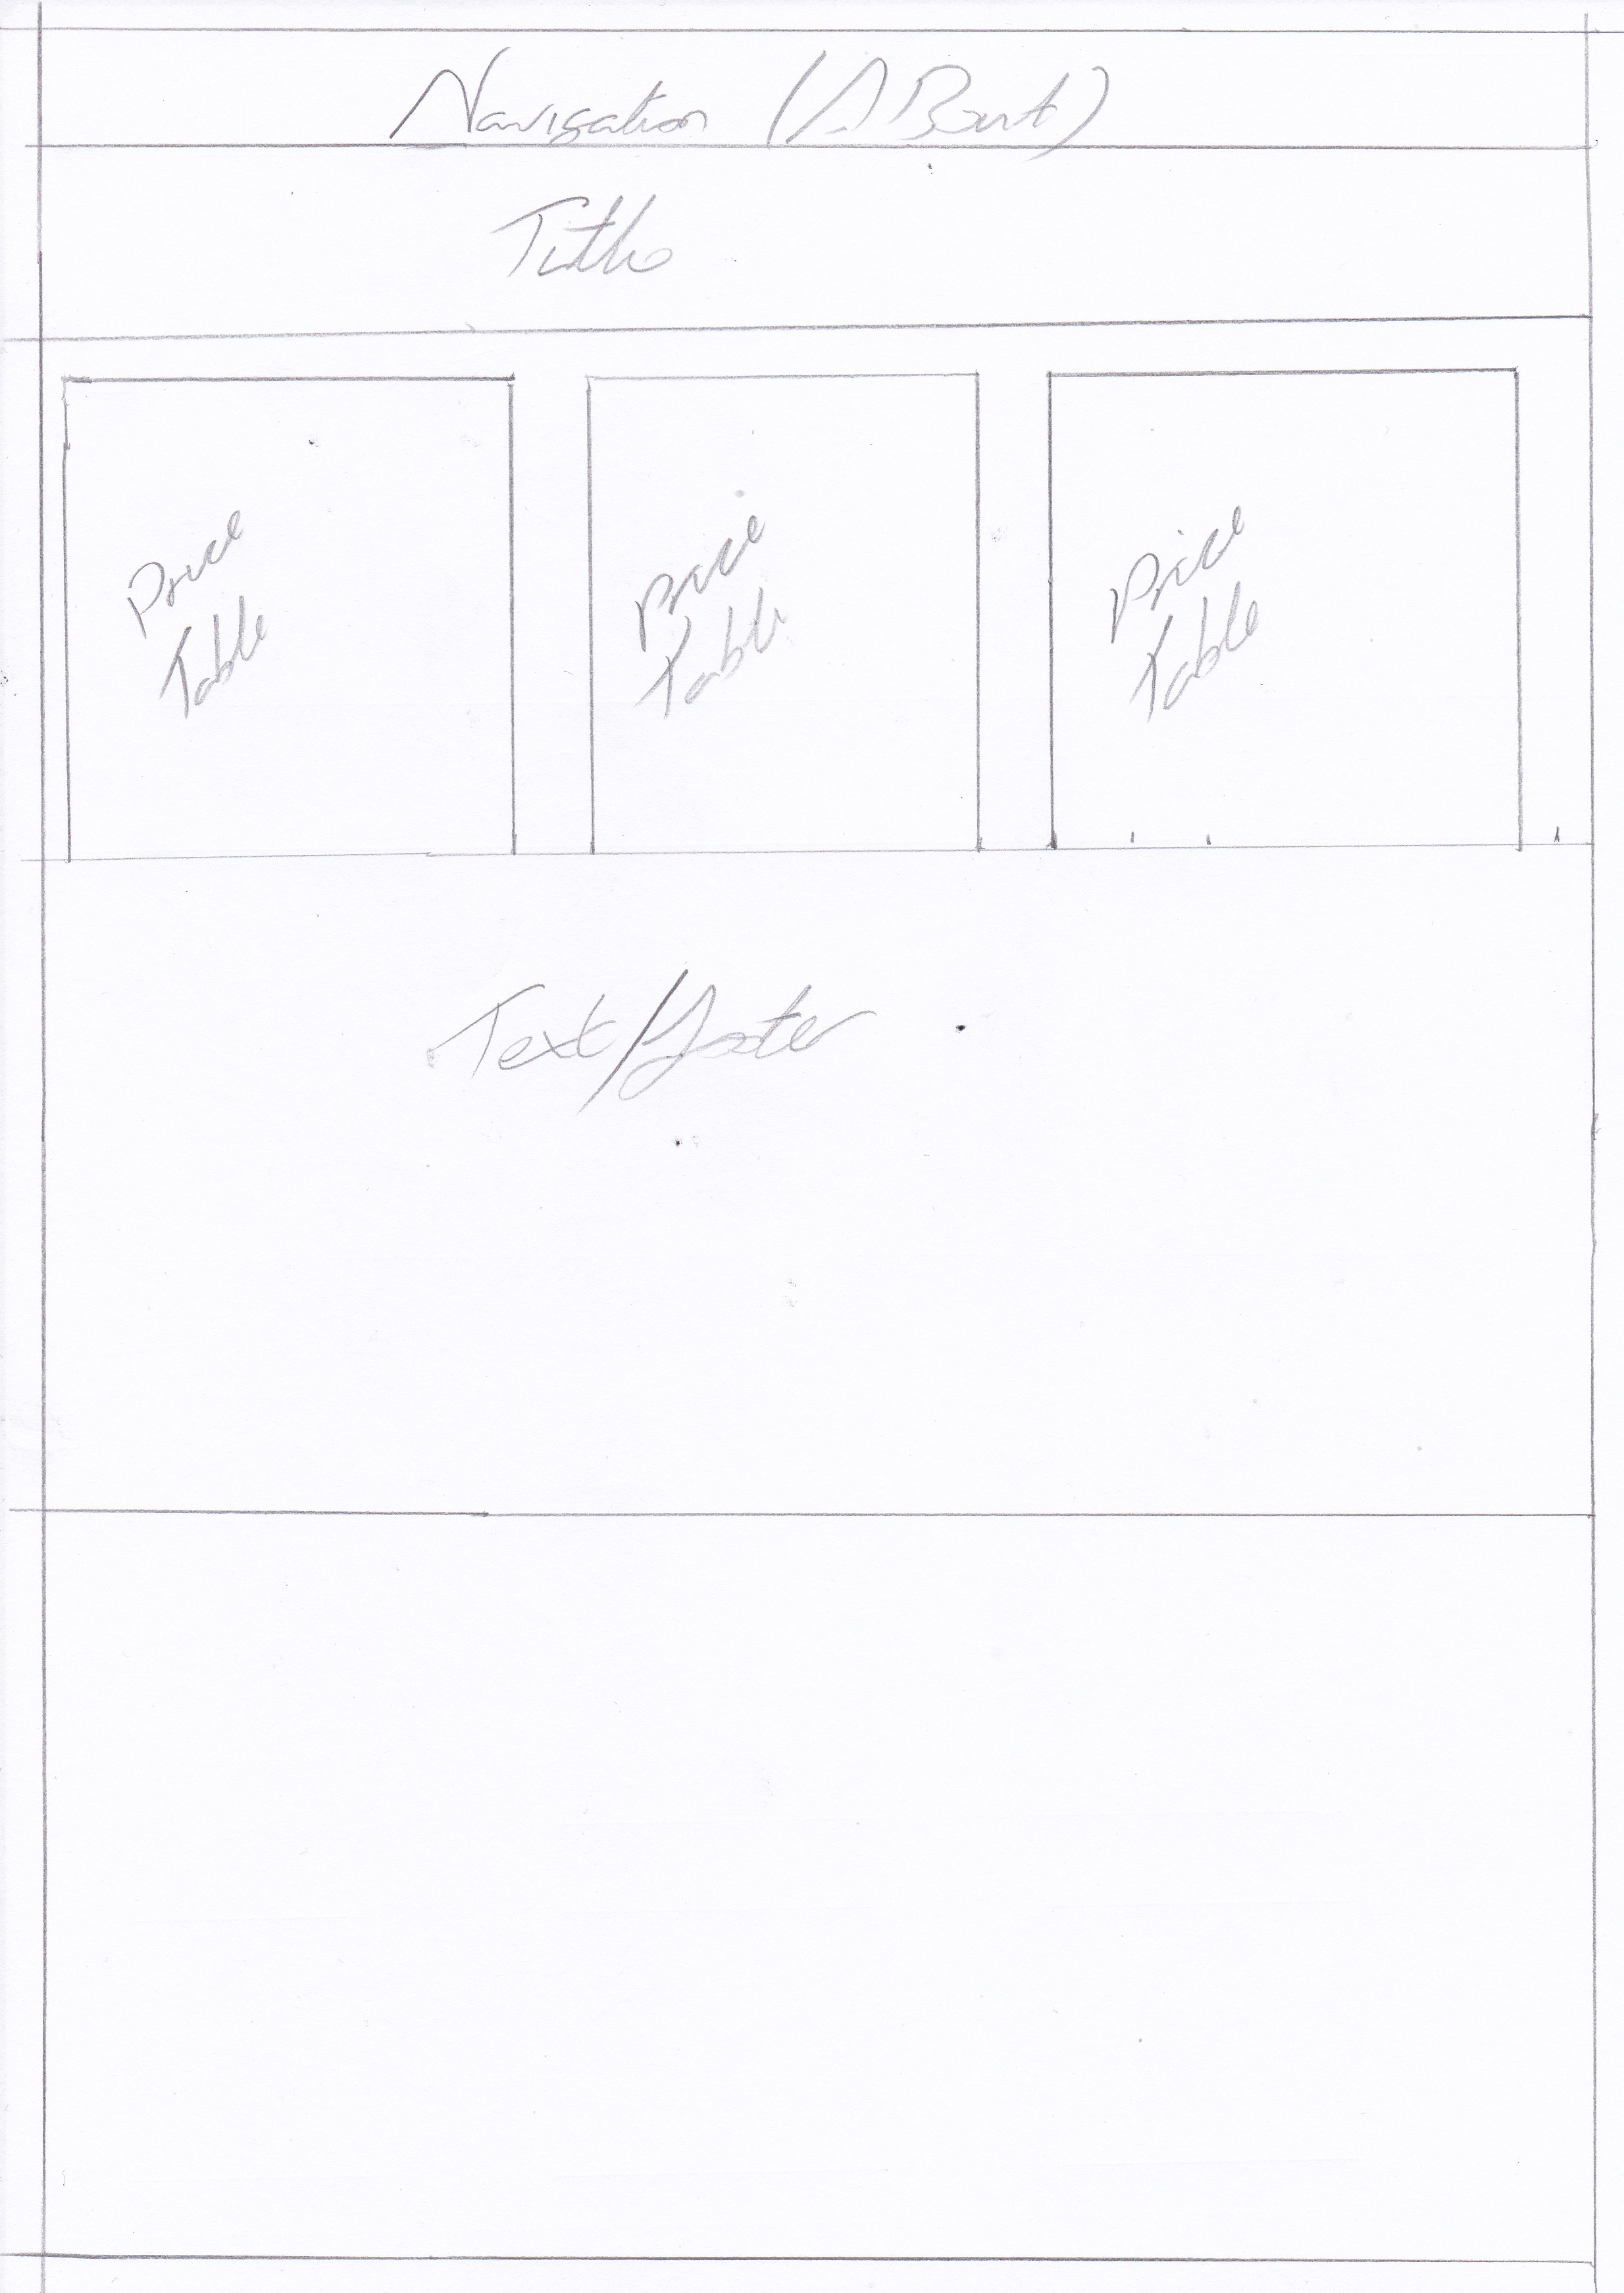 Navigation (About)
Title
Price
Table
Price
Table
Price
Table
Text/footer